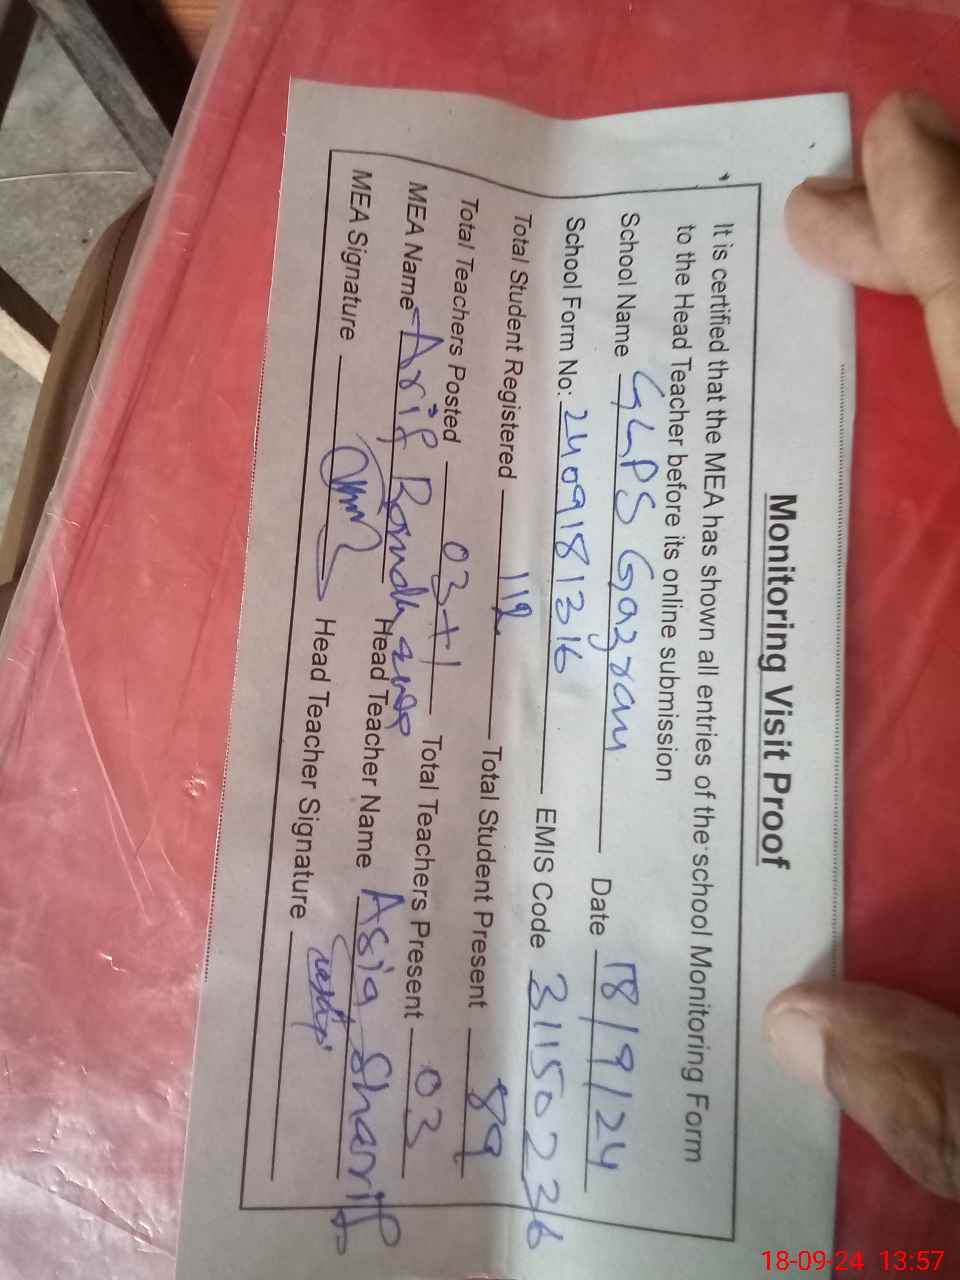 Monitoring Visit Proof
It is certified that the MEA has shown all entries of the school Monitoring Form
to the Head Teacher before its online submission
School Name GGPS Gazran Date 18/9/24
School Form No: 2409181316 EMIS Code 31150236
Total Student Registered 112 Total Student Present 89
Total Teachers Posted 03+1 Total Teachers Present 03
MEA Name Arif Head Teacher Name Asia Sharif
MEA Signature Head Teacher Signature
18-09-24 13:57